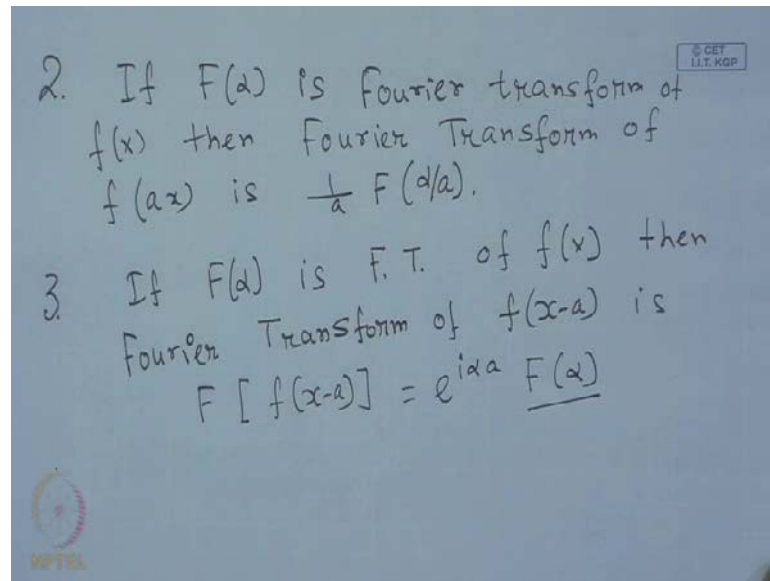 © CET
I.I.T. KGP
2. If F(α) is Fourier transform of
f(x) then Fourier Transform of
f(ax) is 1/a F(α/a).
3. If F(α) is F.T. of f(x) then
Fourier Transform of f(x-a) is
F[f(x-a)] = e^{iαa} F(α)
NPTEL